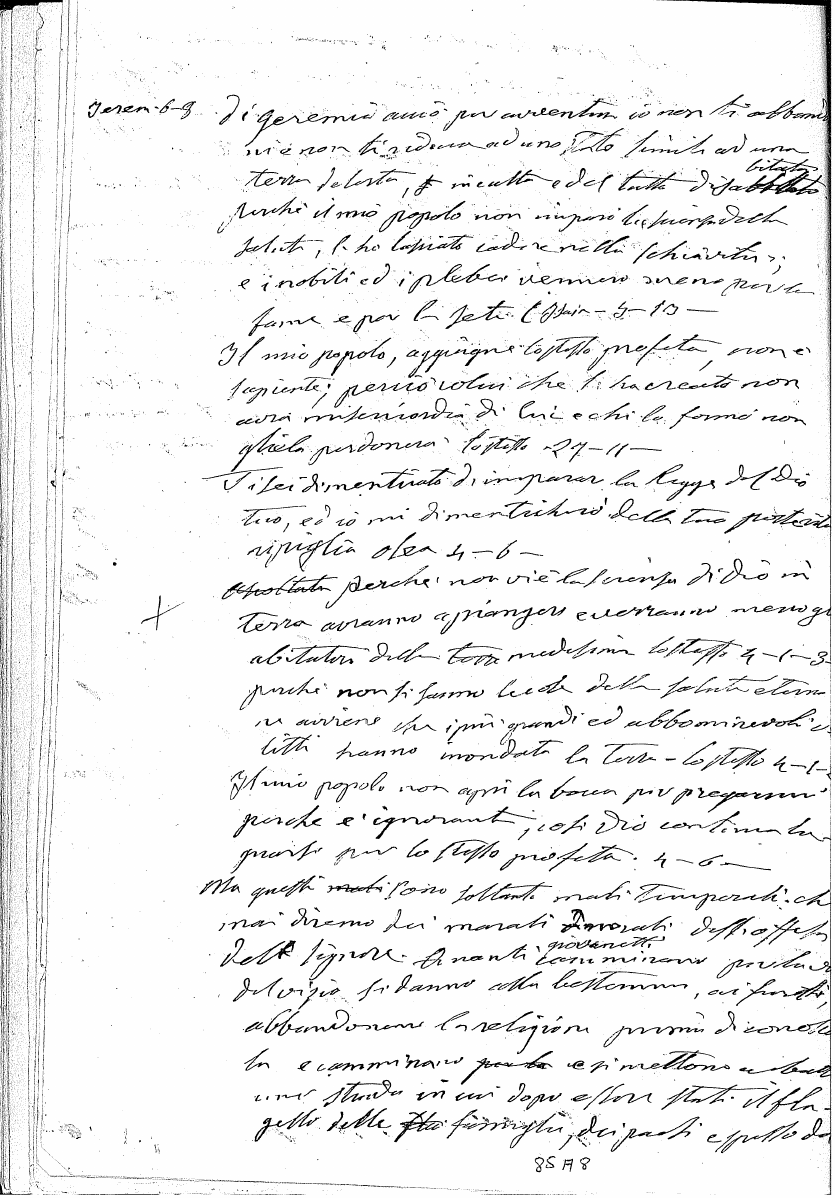 Jerem-6-8
di geremia acciò per avventura io non ti abband
ni e non ti riduca ad uno stato simile ad una
bitata
terra deserta, incolta e del tutto disabitato
perchè il mio popolo non imparò la scienza della
salute, l'ho lasciato cadere nella schiavitù;
e i nobili ed i plebei vennero meno per la
fame e per la sete (Isaia - 5 - 13 —
Il mio popolo, aggiugne lo stesso profeta, non è
sapiente; perciò colui che l'ha creato non
avrà misericordia di lui e chi lo formò non
gliela perdonerà lo stesso - 27 - 11 —
Ti sei dimenticato di imparar la legge del Dio
tuo, ed io mi dimenticherò della tua posterità
ripiglia osea 4 - 6 -
perchè non vi è la scienza di dio in
terra avranno a piangere e verranno meno gl
abitatori della terra medesima lo stesso 4 - 1 - 3
perchè non si fanno della salute eterna
ne avviene che i più grandi ed abbominevoli d
litti hanno inondata la terra - lo stesso 4 - 1 -
Il mio popolo non aprì la bocca per pregarmi
perche e' ignorante, così Dio continua la
gnarsi per lo stesso profeta. 4 - 6 —
Ma questi mali sono soltanto mali temporali. ch
mai diremo dei morali
dell Signore. Quanti camminano per la v
giovanetti
del vizio si danno alla bestemmia, ai furti,
abbandonano la religione prima di conosc
la e camminano per la e si mettono a
una strada in cui dopo essere stati il fla-
gello delle famiglie, dei paesi e spesso da
85 A 8